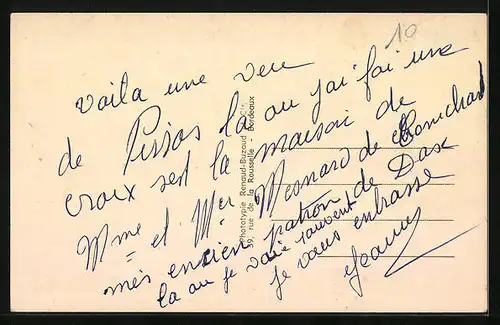 10
Voila une veu
de Pissos la au j'ai fai une
croix sest la maison de
Mme et Mer Mesnard de
mes encien patron de Dax
la au je vais souvent
je vous enbrasse
Jeanny
Phototypie Renaud-Buzaud & Cie
59, rue de la Rousselle - Bordeaux